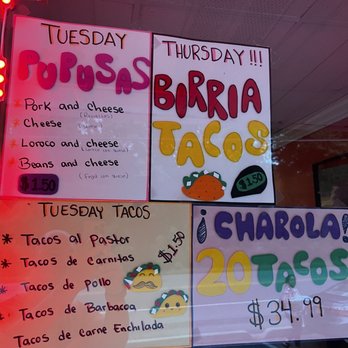 TUESDAY
PUPUSAS
* Pork and cheese
(Revueltas)
* Cheese
* Loroco and cheese
* Beans and cheese
(Frijol con queso)
$1.50
THURSDAY!!!
BIRRIA
TACOS
$1.50
TUESDAY TACOS
* Tacos al Pastor
* Tacos de Carnitas
* Tacos de pollo
* Tacos de Barbacoa
Tacos de Carne Enchilada
$1.50
¡CHAROLA!
20 TACOS
$34.99